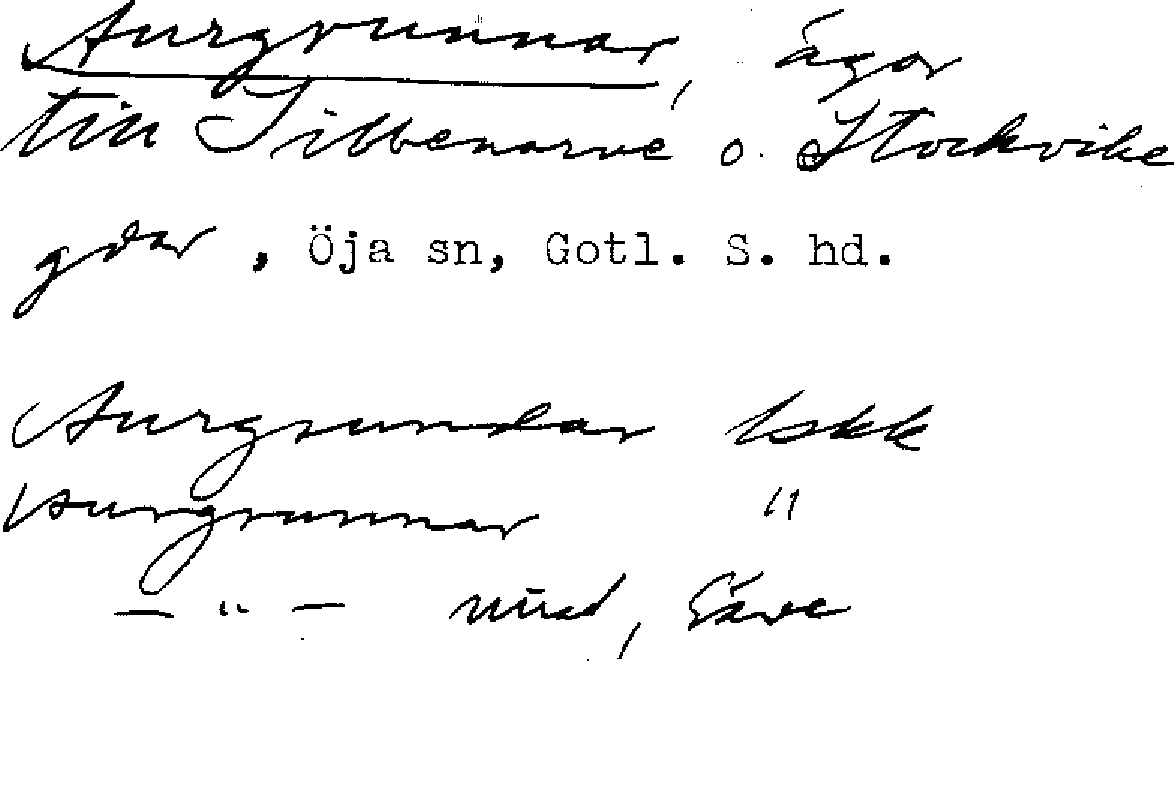 Aurgrunnar, ägor
till Sibbenarve o. Stockvike
gdar, Öja sn, Gotl. S. hd.
Aurgrundar lskk
Aurgrunnar "
— " — mind, Säve